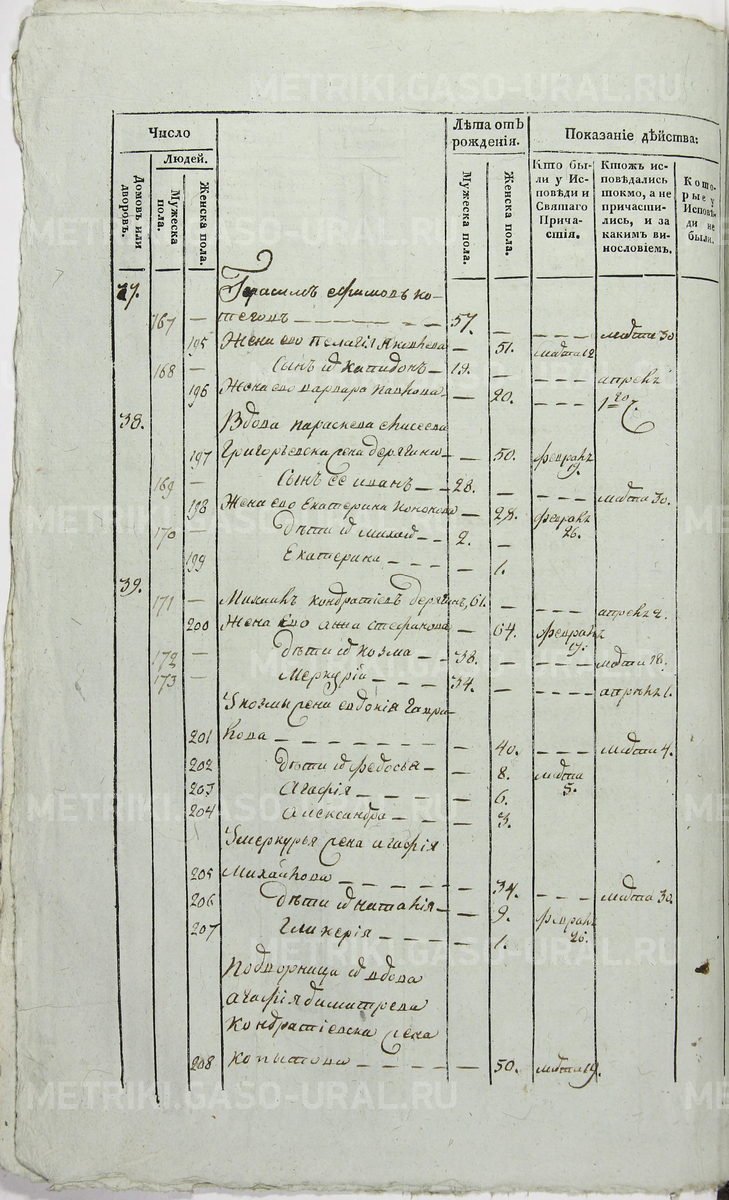 Число
Людей.
Домовъ или дворовъ.
Мужеска пола.
Женска пола.
Лѣта отъ рожденія.
Мужеска пола.
Женска пола.
Показаніе дѣйства:
Кто были у Исповѣди и Святаго Причастія.
Ктожъ исповѣдались токмо, а не причастились, и за какимъ винословіемъ.
Которые у Исповѣди не были.
37. Герасимъ Ефимовъ ко-
167 — 57. — марта 30
195 Жена ево Пелагіа — 51. марта 12
168 — Сынъ — 19. —
196 Жена ево Варвара Павлова — 20.
38. Вдова Параскева Елисеева
197 Григорьевска жена Дерягина — 50. Февраля 19.
169 — Сынъ ее Иванъ — 28. — марта 30.
198 Жена ево Екатерина — 28. Февраля 26.
170 — Дѣти — 2. —
199 Екатерина — 1.
39.
171 — Михаилъ Кондратіевъ Дерягинъ, 61. — апреля 2.
200 Жена ево Анна Стефанова — 64. Февраля 19.
172 — Дѣти Козма — 38. — марта 28.
173 — Меркурій — 34. — апреля 1.
У Козмы жена Евдокія Гаври-
201 лова — 40. — марта 4.
202 Дѣти Федосья — 8. марта 5.
203 Агафія — 6.
204 Александра — 3.
У Меркурья жена Агафія
205 Михайлова — 34. — марта 30.
206 Дѣти Наталія — 9. Февраля 26.
207 Гликерія — 1.
Подворница вдова
Агафія Димитрева
Кондратіевска жена
208 Копытова — 50. марта 19.
METRIKI.GASO-URAL.RU